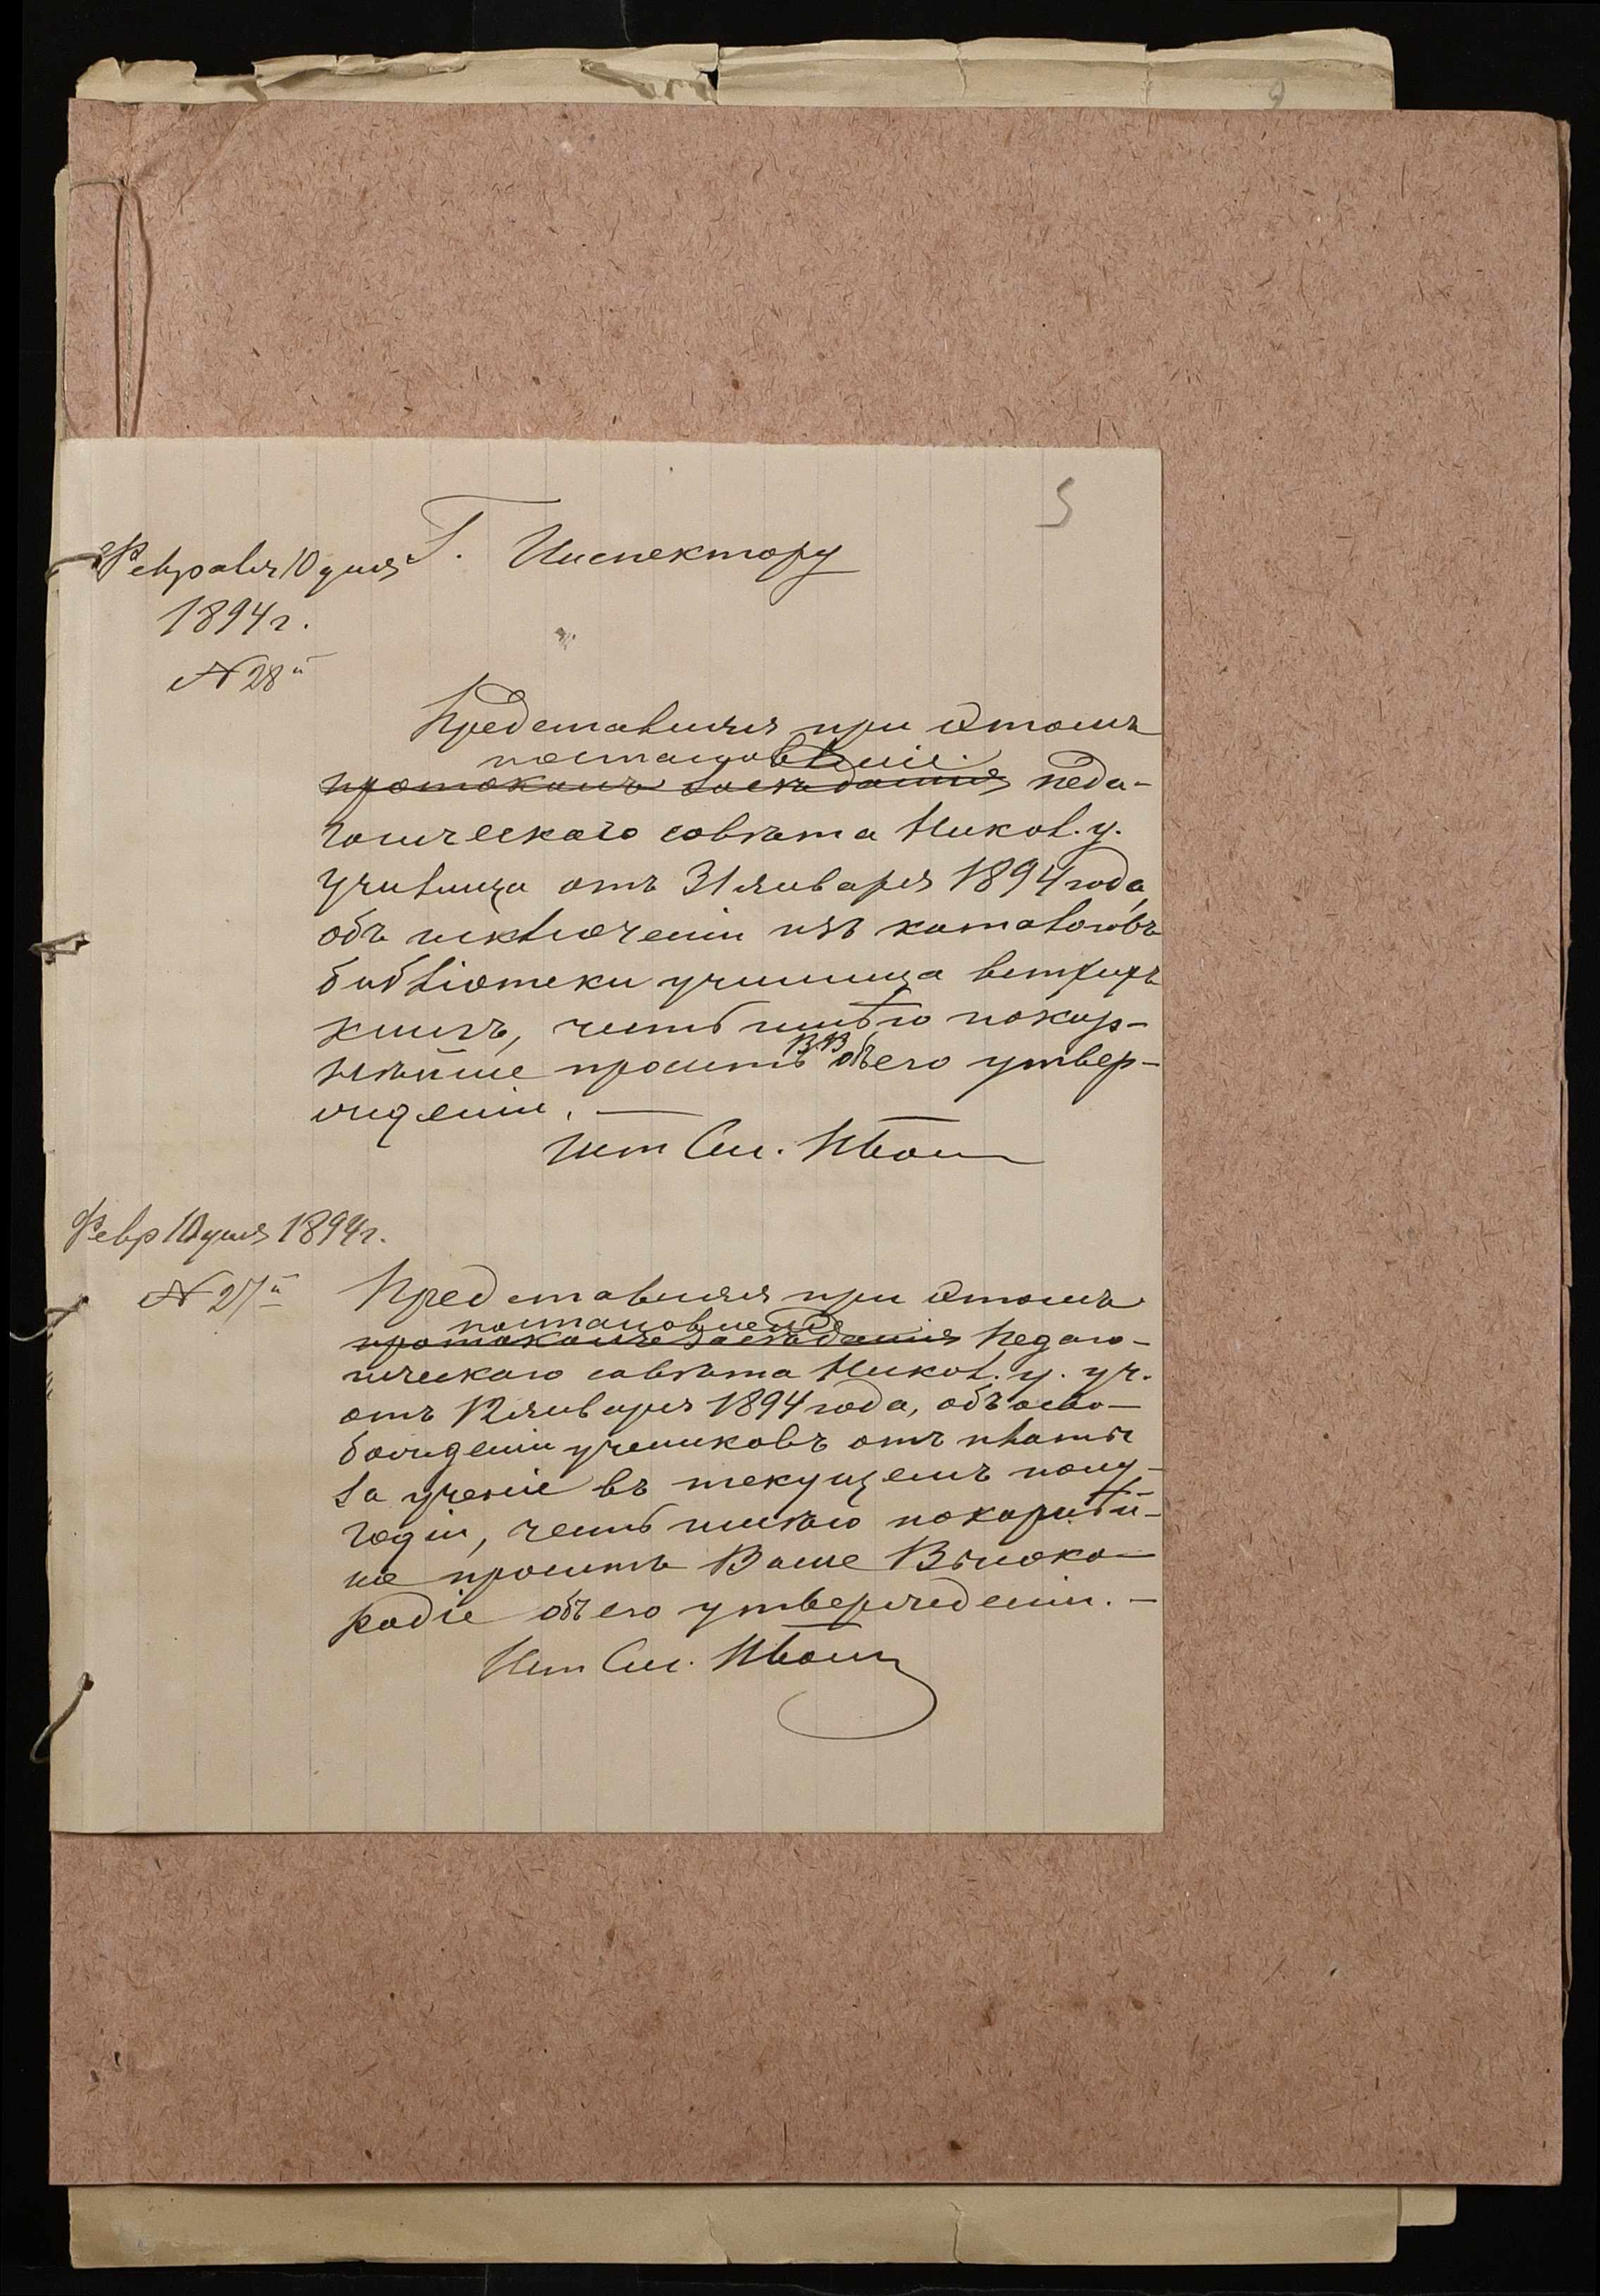 5
Г. Инспектору
Февраля 10 дня
1894 г.
№ 28й
Представляя при этомъ
постановленіе
протоколъ засѣданія педа-
гогическаго совѣта Никол. у.
училища отъ 31 января 1894 года,
объ исключеніи изъ каталоговъ
библіотеки училища ветхихъ
книгъ, честь имѣю покор-
В.В.
нѣйше просить объ его утвер-
жденіи. —
Шт См. Ива
Февр 10 дня 1894 г.
№ 27й
Представляя при этомъ
постановленія
протоколъ засѣданія педаго-
гическаго совѣта Никол. у. уч.
отъ 12 января 1894 года, объ осво-
божденіи учениковъ отъ платы
за ученіе въ текущемъ полу-
годіи, честь имѣю покорнѣй-
ше просить Ваше Высоко-
родіе объ его утвержденіи. —
Шт См.